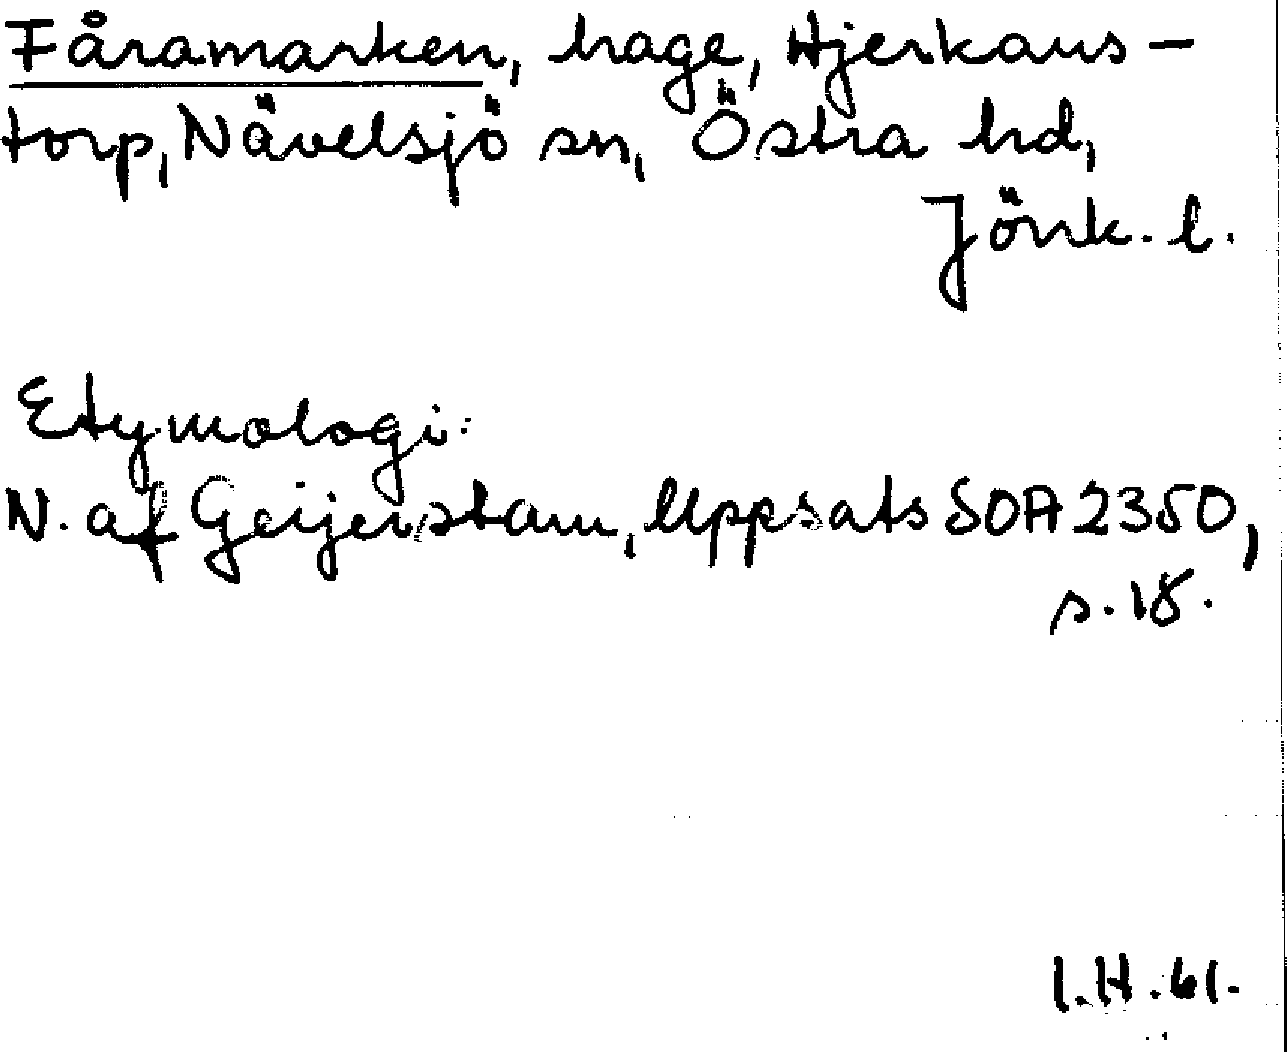 Fåramarken, hage, Hjerkaus-
torp, Nävelsjö sn, Östra hd,
Jönk. l.
Etymologi:
N. af Geijerstam, Uppsats SOA 2350,
s. 18.
I.H. 61.